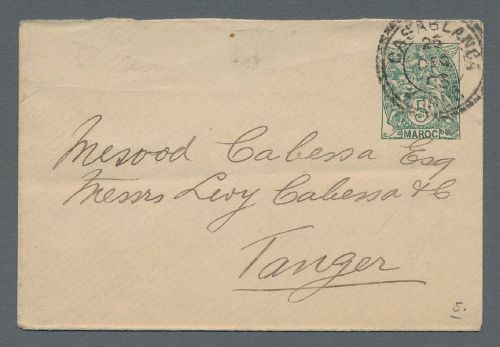 CASABLANCA
25
5
MAROC
Mesood Cabessa Esq
Messrs Levy Cabessa & C
Tanger